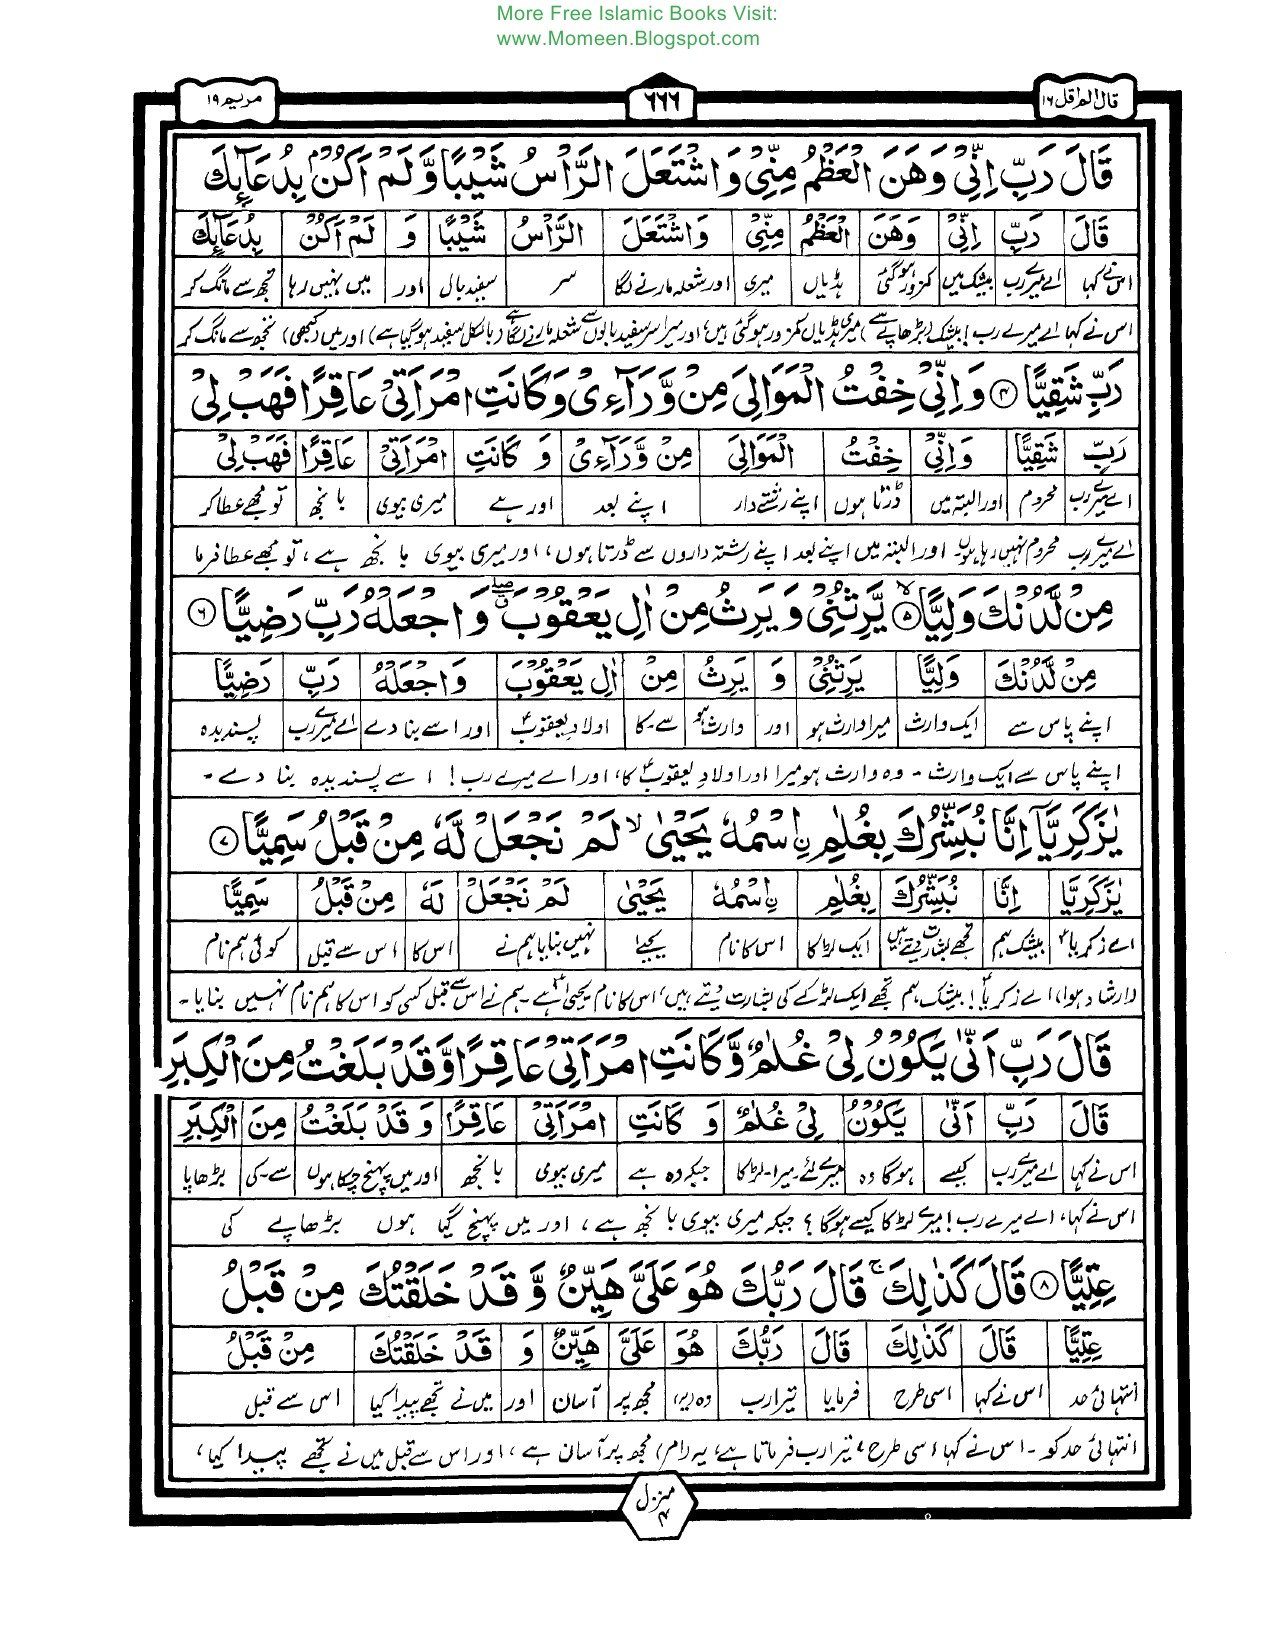 More Free Islamic Books Visit:
www.Momeen.Blogspot.com
قال الم اقل ١٦
٦٦٦
مريم ١٩
قَالَ رَبِّ اِنِّىْ وَهَنَ الْعَظْمُ مِنِّىْ وَاشْتَعَلَ الرَّاْسُ شَيْبًا وَّ لَمْ اَكُنْۢ بِدُعَآئِكَ
قَالَ رَبِّ اِنِّىْ وَهَنَ الْعَظْمُ مِنِّىْ وَاشْتَعَلَ الرَّاْسُ شَيْبًا وَ لَمْ اَكُنْ بِدُعَآئِكَ
اس نے کہا اے میرے رب بیشک میں کمزور ہوگئی ہڈیاں میری اور شعلہ مارنے لگا سر سفید بال اور میں نہیں رہا تجھ سے مانگ کر
اس نے کہا اے میرے رب! بیشک (بڑھاپے سے) میری ہڈیاں کمزور ہوگئی ہیں، اور میرا سر سفید بالوں سے شعلہ مارنے لگا ہے (بالکل سفید ہوگیا ہے) اور میں (کبھی) تجھ سے مانگ کر
رَبِّ شَقِيًّا ۴ وَاِنِّىْ خِفْتُ الْمَوَالِىَ مِنْ وَّرَآءِىْ وَكَانَتِ امْرَاَتِىْ عَاقِرًا فَهَبْ لِىْ
رَبِّ شَقِيًّا وَاِنِّىْ خِفْتُ الْمَوَالِىَ مِنْ وَّرَآءِىْ وَ كَانَتِ امْرَاَتِىْ عَاقِرًا فَهَبْ لِىْ
اے میرے رب محروم اور البتہ میں ڈرتا ہوں اپنے رشتے دار اپنے بعد اور ہے میری بیوی بانجھ تو مجھے عطا کر
اے میرے رب محروم نہیں رہا ہوں اور البتہ میں اپنے بعد اپنے رشتہ داروں سے ڈرتا ہوں، اور میری بیوی بانجھ ہے، تو مجھے عطا فرما
مِنْ لَّدُنْكَ وَلِيًّا ۵ لا يَّرِثُنِىْ وَ يَرِثُ مِنْ اٰلِ يَعْقُوْبَ وَاجْعَلْهُ رَبِّ رَضِيًّا ۶
مِنْ لَّدُنْكَ وَلِيًّا يَرِثُنِىْ وَ يَرِثُ مِنْ اٰلِ يَعْقُوْبَ وَاجْعَلْهُ رَبِّ رَضِيًّا
اپنے پاس سے ایک وارث میرا وارث ہو اور وارث ہو سے۔کا اولادِ یعقوبؑ اور اسے بنا دے اے میرے رب پسندیدہ
اپنے پاس سے ایک وارث۔ وہ وارث ہو میرا اور اولادِ یعقوبؑ کا، اور اے میرے رب! اسے پسندیدہ بنا دے۔
يٰزَكَرِيَّآ اِنَّا نُبَشِّرُكَ بِغُلٰمِ ࣙاسْمُهٗ يَحْيٰى لا لَمْ نَجْعَلْ لَّهٗ مِنْ قَبْلُ سَمِيًّا ۷
يٰزَكَرِيَّا اِنَّا نُبَشِّرُكَ بِغُلٰمِ ࣙاسْمُهٗ يَحْيٰى لَمْ نَجْعَلْ لَهٗ مِنْ قَبْلُ سَمِيًّا
اے زکریاؑ بیشک ہم تجھے بشارت دیتے ہیں ایک لڑکا اس کا نام یحییٰ نہیں بنایا ہم نے اس کا اس سے قبل کوئی ہم نام
(ارشاد ہوا) اے زکریاؑ! بیشک ہم تجھے ایک لڑکے کی بشارت دیتے ہیں، اس کا نام یحییٰؑ ہے۔ ہم نے اس سے قبل کسی کو اس کا ہم نام نہیں بنایا۔
قَالَ رَبِّ اَنّٰى يَكُوْنُ لِىْ غُلٰمٌ وَّكَانَتِ امْرَاَتِىْ عَاقِرًا وَّقَدْ بَلَغْتُ مِنَ الْكِبَرِ
قَالَ رَبِّ اَنّٰى يَكُوْنُ لِىْ غُلٰمٌ وَ كَانَتِ امْرَاَتِىْ عَاقِرًا وَ قَدْ بَلَغْتُ مِنَ الْكِبَرِ
اس نے کہا اے میرے رب کیسے ہوگا وہ میرے لئے۔میرا۔لڑکا جبکہ وہ ہے میری بیوی بانجھ اور میں پہنچ چکا ہوں سے۔کی بڑھاپا
اس نے کہا، اے میرے رب! میرے لڑکا کیسے ہوگا؟ جبکہ میری بیوی بانجھ ہے، اور میں پہنچ گیا ہوں بڑھاپے کی
عِتِيًّا ۸ قَالَ كَذٰلِكَ ج قَالَ رَبُّكَ هُوَ عَلَىَّ هَيِّنٌ وَّ قَدْ خَلَقْتُكَ مِنْ قَبْلُ
عِتِيًّا قَالَ كَذٰلِكَ قَالَ رَبُّكَ هُوَ عَلَىَّ هَيِّنٌ وَ قَدْ خَلَقْتُكَ مِنْ قَبْلُ
انتہائی حد اس نے کہا اسی طرح فرمایا تیرا رب وہ (یہ) مجھ پر آسان اور میں نے تجھے پیدا کیا اس سے قبل
انتہائی حد کو۔ اس نے کہا اسی طرح، تیرا رب فرماتا ہے، یہ (امر) مجھ پر آسان ہے، اور اس سے قبل میں نے تجھے پیدا کیا،
منزل ۴